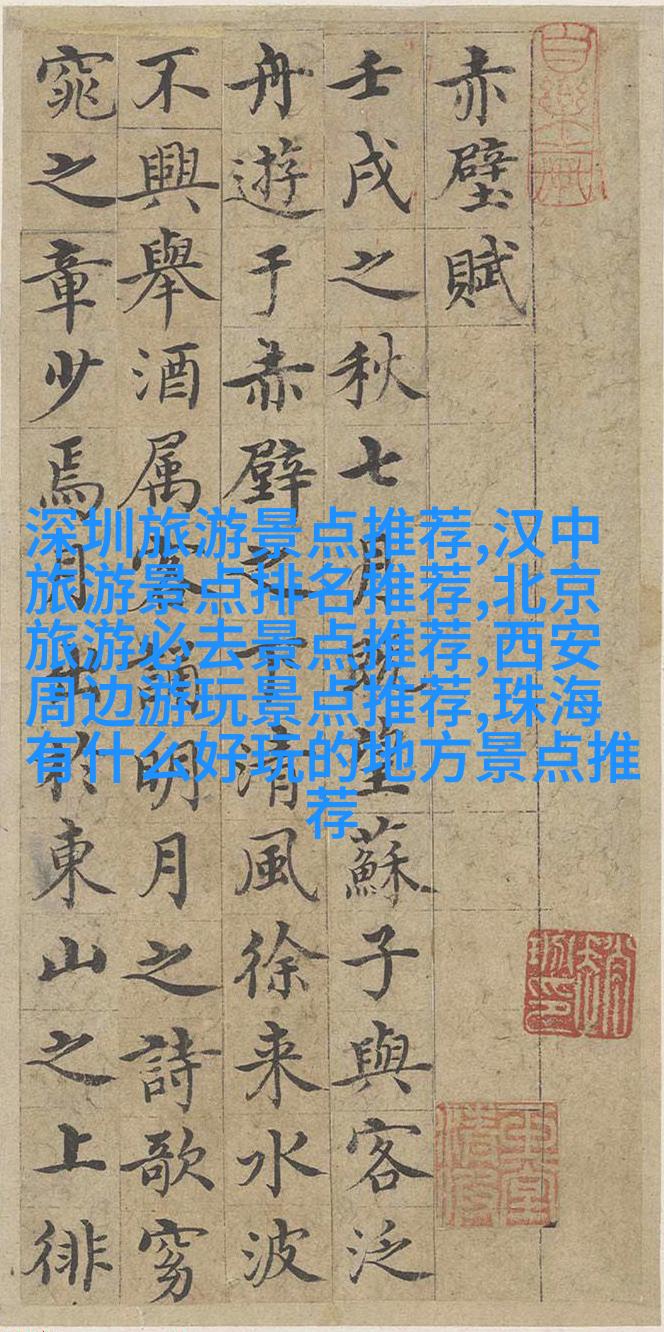 赤壁賦
壬戌之秋七月既望蘇子與客泛
舟遊于赤壁之下清風徐来水波
不興舉酒属客誦明月之詩歌窈
窕之章少焉月出於東山之上徘
深圳旅游景点推荐,汉中
旅游景点排名推荐,北京
旅游必去景点推荐,西安
周边游玩景点推荐,珠海
有什么好玩的地方景点推
荐